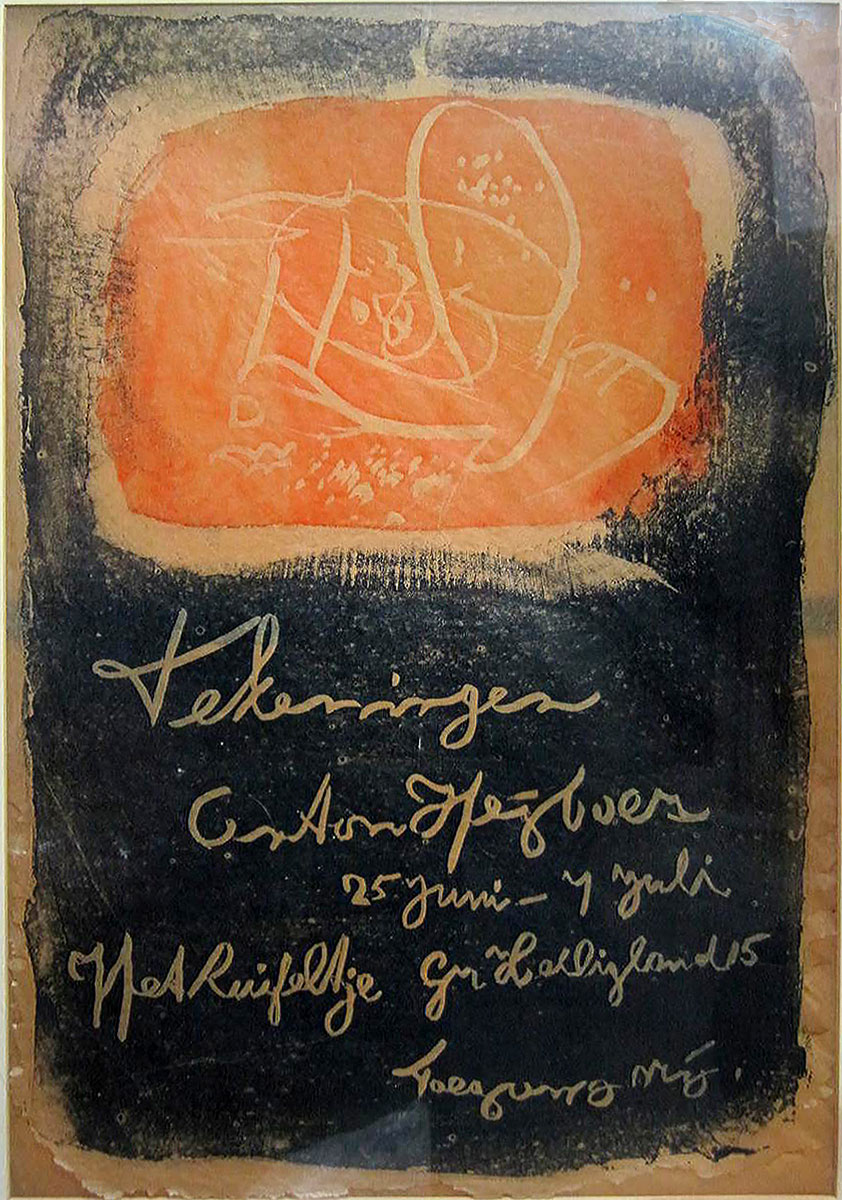 Tekeningen
Anton Heyboer
25 juni - 7 juli
Het Ruifeltje Gr Heiligland 15
toegang vrij.